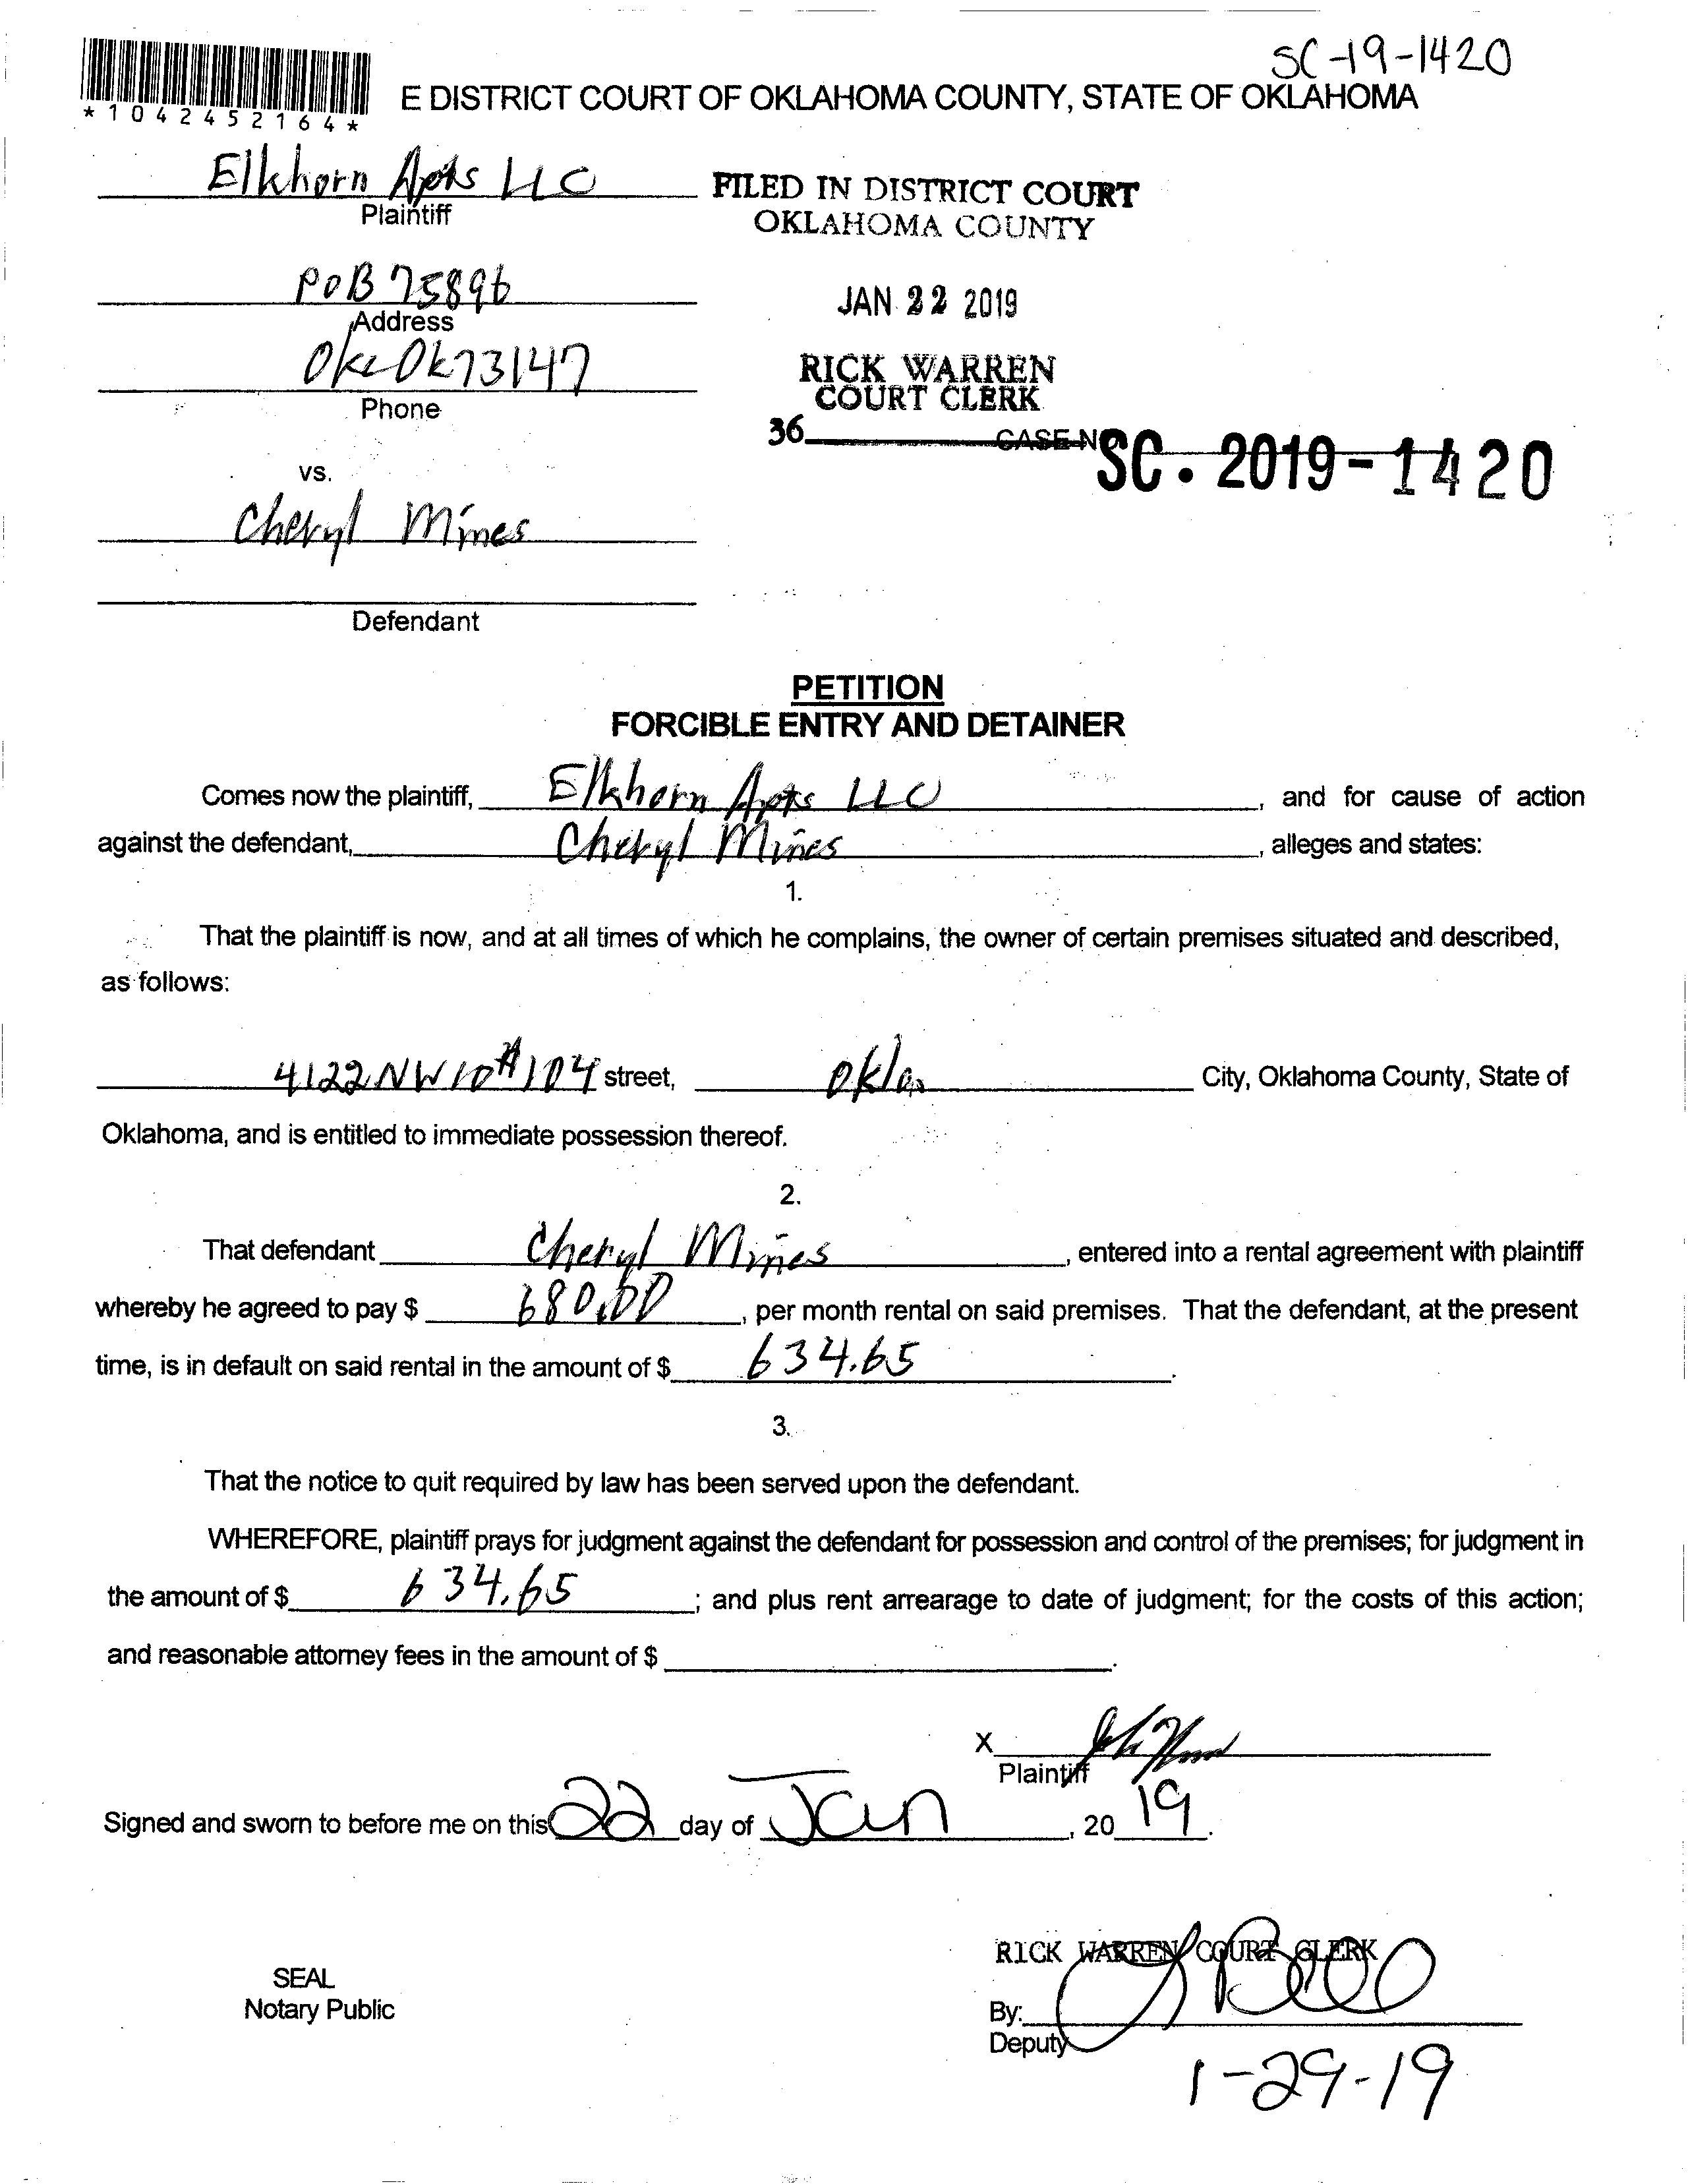 SC-19-1420
*1042452164*
E DISTRICT COURT OF OKLAHOMA COUNTY, STATE OF OKLAHOMA
Elkhorn Apts LLC
Plaintiff
FILED IN DISTRICT COURT
OKLAHOMA COUNTY
POB 75896
Address
JAN 22 2019
Okc Ok 73147
Phone
RICK WARREN
COURT CLERK
36
CASE NO
SC. 2019-1420
vs.
Cheryl Mines
Defendant
PETITION
FORCIBLE ENTRY AND DETAINER
Comes now the plaintiff, Elkhorn Apts LLC, and for cause of action
against the defendant, Cheryl Mines, alleges and states:
1.
That the plaintiff is now, and at all times of which he complains, the owner of certain premises situated and described,
as follows:
4122 NW 10 #104 street, Okla City, Oklahoma County, State of
Oklahoma, and is entitled to immediate possession thereof.
2.
That defendant Cheryl Mines, entered into a rental agreement with plaintiff
whereby he agreed to pay $ 680.00, per month rental on said premises. That the defendant, at the present
time, is in default on said rental in the amount of $ 634.65.
3.
That the notice to quit required by law has been served upon the defendant.
WHEREFORE, plaintiff prays for judgment against the defendant for possession and control of the premises; for judgment in
the amount of $ 634.65; and plus rent arrearage to date of judgment; for the costs of this action;
and reasonable attorney fees in the amount of $ .
X
Plaintiff
Signed and sworn to before me on this 22 day of Jan, 20 19.
RICK WARREN COURT CLERK
SEAL
Notary Public
By:
Deputy
1-29-19